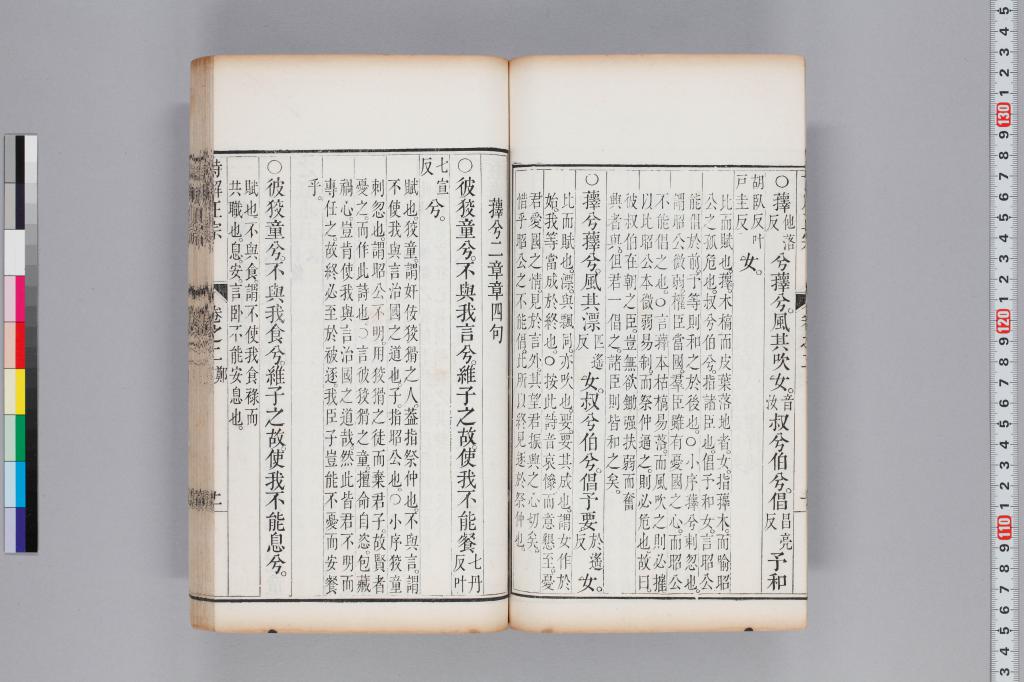 ○蘀他落反兮蘀兮。風其吹女。音汝叔兮伯兮。倡昌亮反予和
胡臥反叶戶圭反女。
比而賦也。蘀木槁而皮葉落地者。女指蘀木而喻昭
公之孤危也。叔兮伯兮。指諸臣也。倡予和女。言昭公
能倡於前。予等則和之於後也。○小序。蘀兮刺忽也。
謂昭公微弱。權臣當國。羣臣雖有憂國之心。而昭公
不能倡之也。○言蘀本枯槁易落。而風吹之則必摧
以比昭公本微弱易制。而祭仲逼之。則必危也。故曰。
彼叔伯在朝之臣。豈無欲鋤强扶弱。而奮
與者與。但君一倡之。諸臣則皆和之矣。
○蘀兮蘀兮。風其漂匹遙反女。叔兮伯兮。倡予要於遙反女。
比而賦也。漂與飄同。亦吹也。要。要其成也。謂女作於
始。我等當成於終也。○按此詩音哀慘而意懇至。憂
君愛國之情。見於言外。其望君振興之心切矣。
惜乎昭公之不能倡。此所以終見逐於祭仲也。
蘀兮二章章四句
○彼狡童兮。不與我言兮。維子之故。使我不能餐七丹反叶
七宣反兮。
賦也。狡童。謂奸佞狡猾之人。蓋指祭仲也。不與言。謂
不使我與言治國之道也。子指昭公也。○小序。狡童
刺忽也。謂昭公不明。用狡猾之徒而棄君子。故賢者
憂之。而作此詩也。○言彼狡猾之童。擅命自恣。包藏
禍心。豈肯使我與言治國之道哉。然此皆君不明而
專任之故。終必至於被逐。我臣子豈能不憂而安餐
乎。
○彼狡童兮。不與我食兮。維子之故。使我不能息兮。
賦也。不與食。謂不使我食祿而
共職也。息安。言卧不能安息也。
詩解正宗 卷之二 鄭